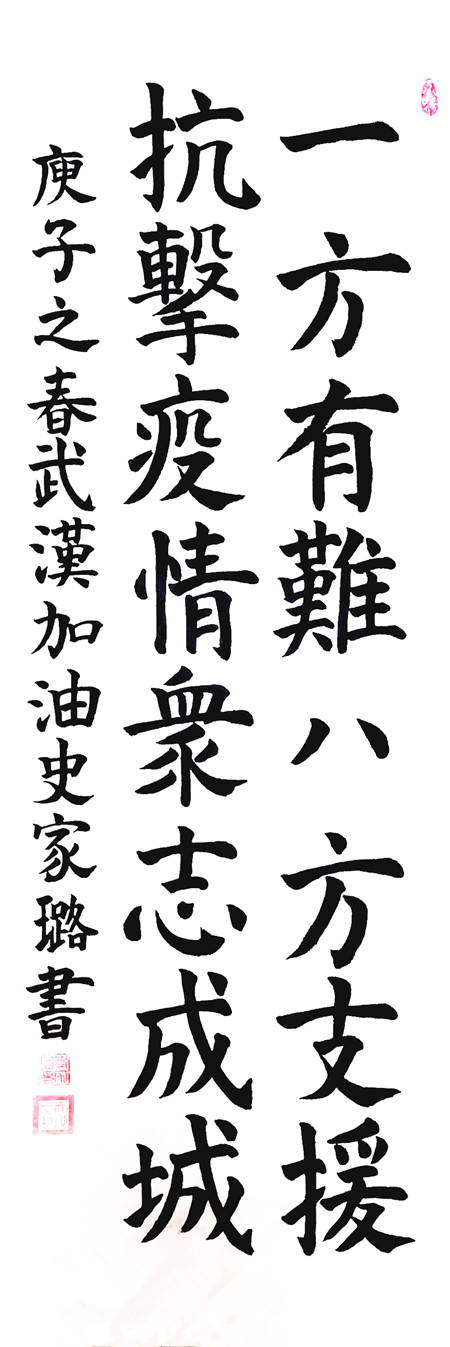 一方有難八方支援
抗擊疫情衆志成城
庚子之春武漢加油史家璐書